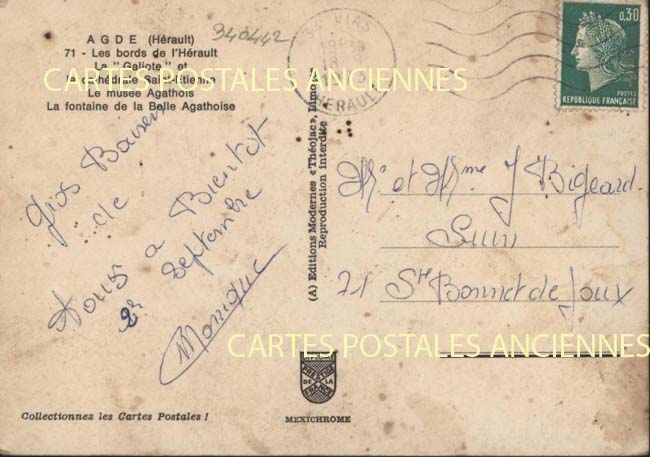 A G D E (Hérault)
71 - Les bords de l'Hérault
La "Galiote" et
la cathédrale Saint-Etienne
Le musée Agathois
La fontaine de la Belle Agathoise
340442
34 VIAS
HERAULT
0,30
POSTES
REPUBLIQUE FRANÇAISE
CARTES POSTALES ANCIENNES
Gros Baisers
de
Nous a Bientot
2r Septembre
Monique
(A) Editions Modernes «Théojac», Limoges
Reproduction interdite
Mr et Mme J Bigeard
Suin
71 St Bonnet de Joux
CARTES POSTALES ANCIENNES
DE LA
FRANCE
MEXICHROME
Collectionnez les Cartes Postales !